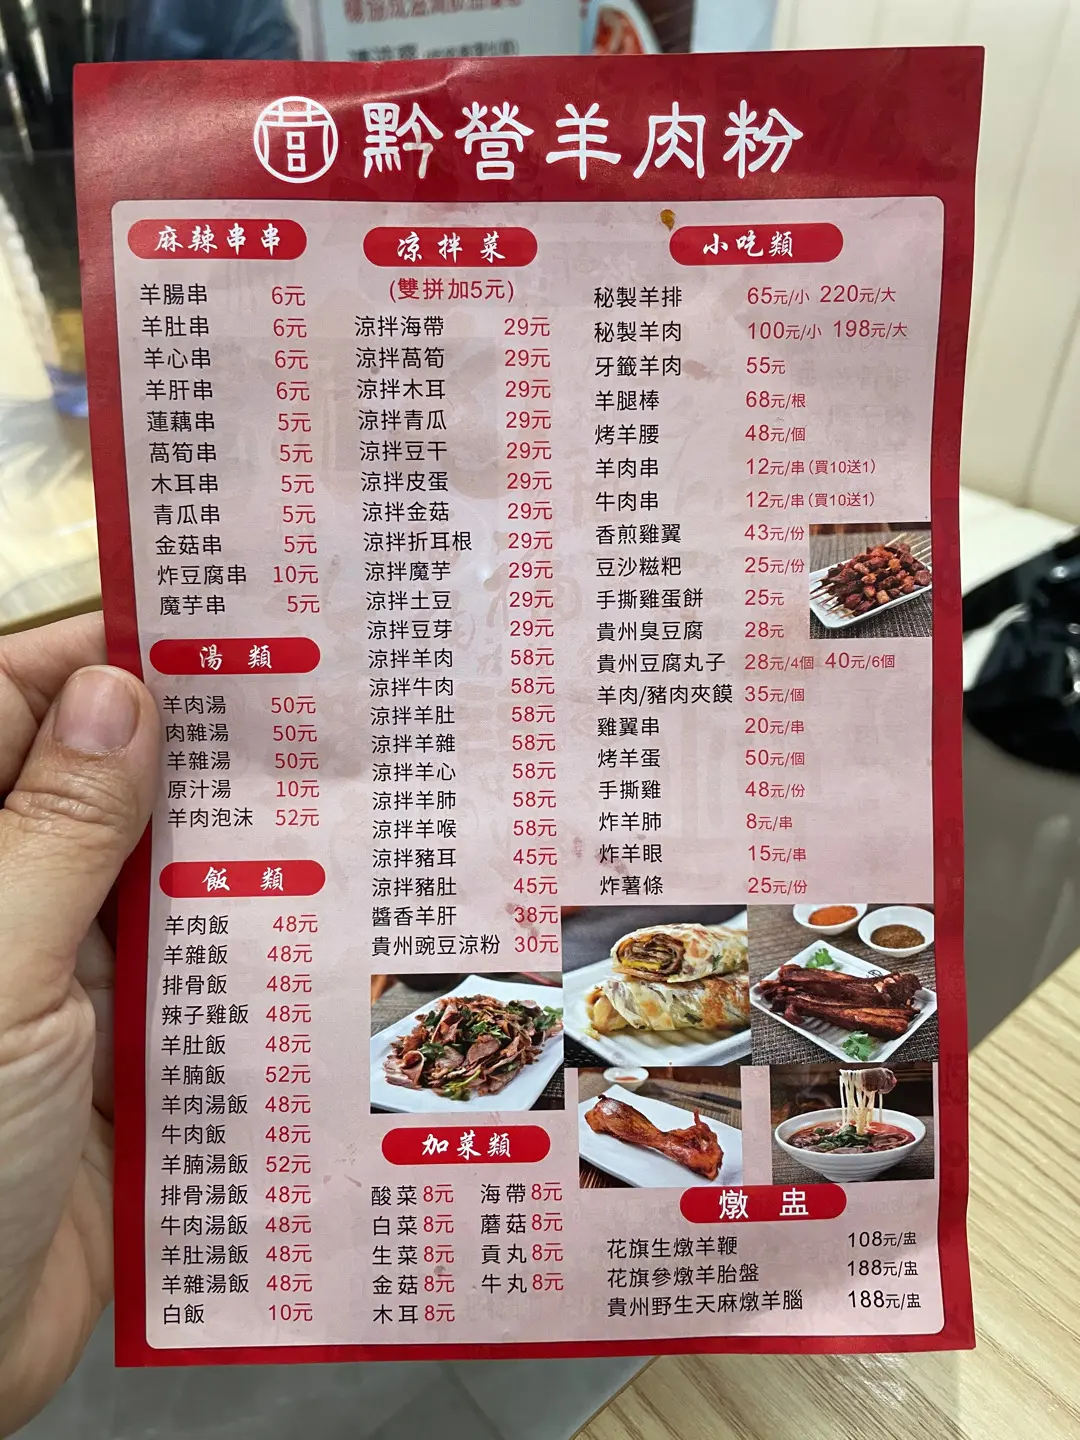 黔營羊肉粉
麻辣串串
羊腸串 6元
羊肚串 6元
羊心串 6元
羊肝串 6元
蓮藕串 5元
萵筍串 5元
木耳串 5元
青瓜串 5元
金菇串 5元
炸豆腐串 10元
魔芋串 5元
湯 類
羊肉湯 50元
肉雜湯 50元
羊雜湯 50元
原汁湯 10元
羊肉泡沫 52元
飯 類
羊肉飯 48元
羊雜飯 48元
排骨飯 48元
辣子雞飯 48元
羊肚飯 48元
羊腩飯 52元
羊肉湯飯 48元
牛肉飯 48元
羊腩湯飯 52元
排骨湯飯 48元
牛肉湯飯 48元
羊肚湯飯 48元
羊雜湯飯 48元
白飯 10元
凉拌菜
(雙拼加5元)
涼拌海帶 29元
涼拌萵筍 29元
涼拌木耳 29元
涼拌青瓜 29元
涼拌豆干 29元
涼拌皮蛋 29元
涼拌金菇 29元
涼拌折耳根 29元
涼拌魔芋 29元
涼拌土豆 29元
涼拌豆芽 29元
涼拌羊肉 58元
涼拌牛肉 58元
涼拌羊肚 58元
涼拌羊雜 58元
涼拌羊心 58元
涼拌羊肺 58元
涼拌羊喉 58元
涼拌豬耳 45元
涼拌豬肚 45元
醬香羊肝 38元
貴州豌豆涼粉 30元
加菜類
酸菜 8元 海帶 8元
白菜 8元 蘑菇 8元
生菜 8元 貢丸 8元
金菇 8元 牛丸 8元
木耳 8元
小吃類
秘製羊排 65元/小 220元/大
秘製羊肉 100元/小 198元/大
牙籤羊肉 55元
羊腿棒 68元/根
烤羊腰 48元/個
羊肉串 12元/串(買10送1)
牛肉串 12元/串(買10送1)
香煎雞翼 43元/份
豆沙糍粑 25元/份
手撕雞蛋餅 25元
貴州臭豆腐 28元
貴州豆腐丸子 28元/4個 40元/6個
羊肉/豬肉夾饃 35元/個
雞翼串 20元/串
烤羊蛋 50元/個
手撕雞 48元/份
炸羊肺 8元/串
炸羊眼 15元/串
炸薯條 25元/份
燉 盅
花旗生燉羊鞭 108元/盅
花旗參燉羊胎盤 188元/盅
貴州野生天麻燉羊腦 188元/盅